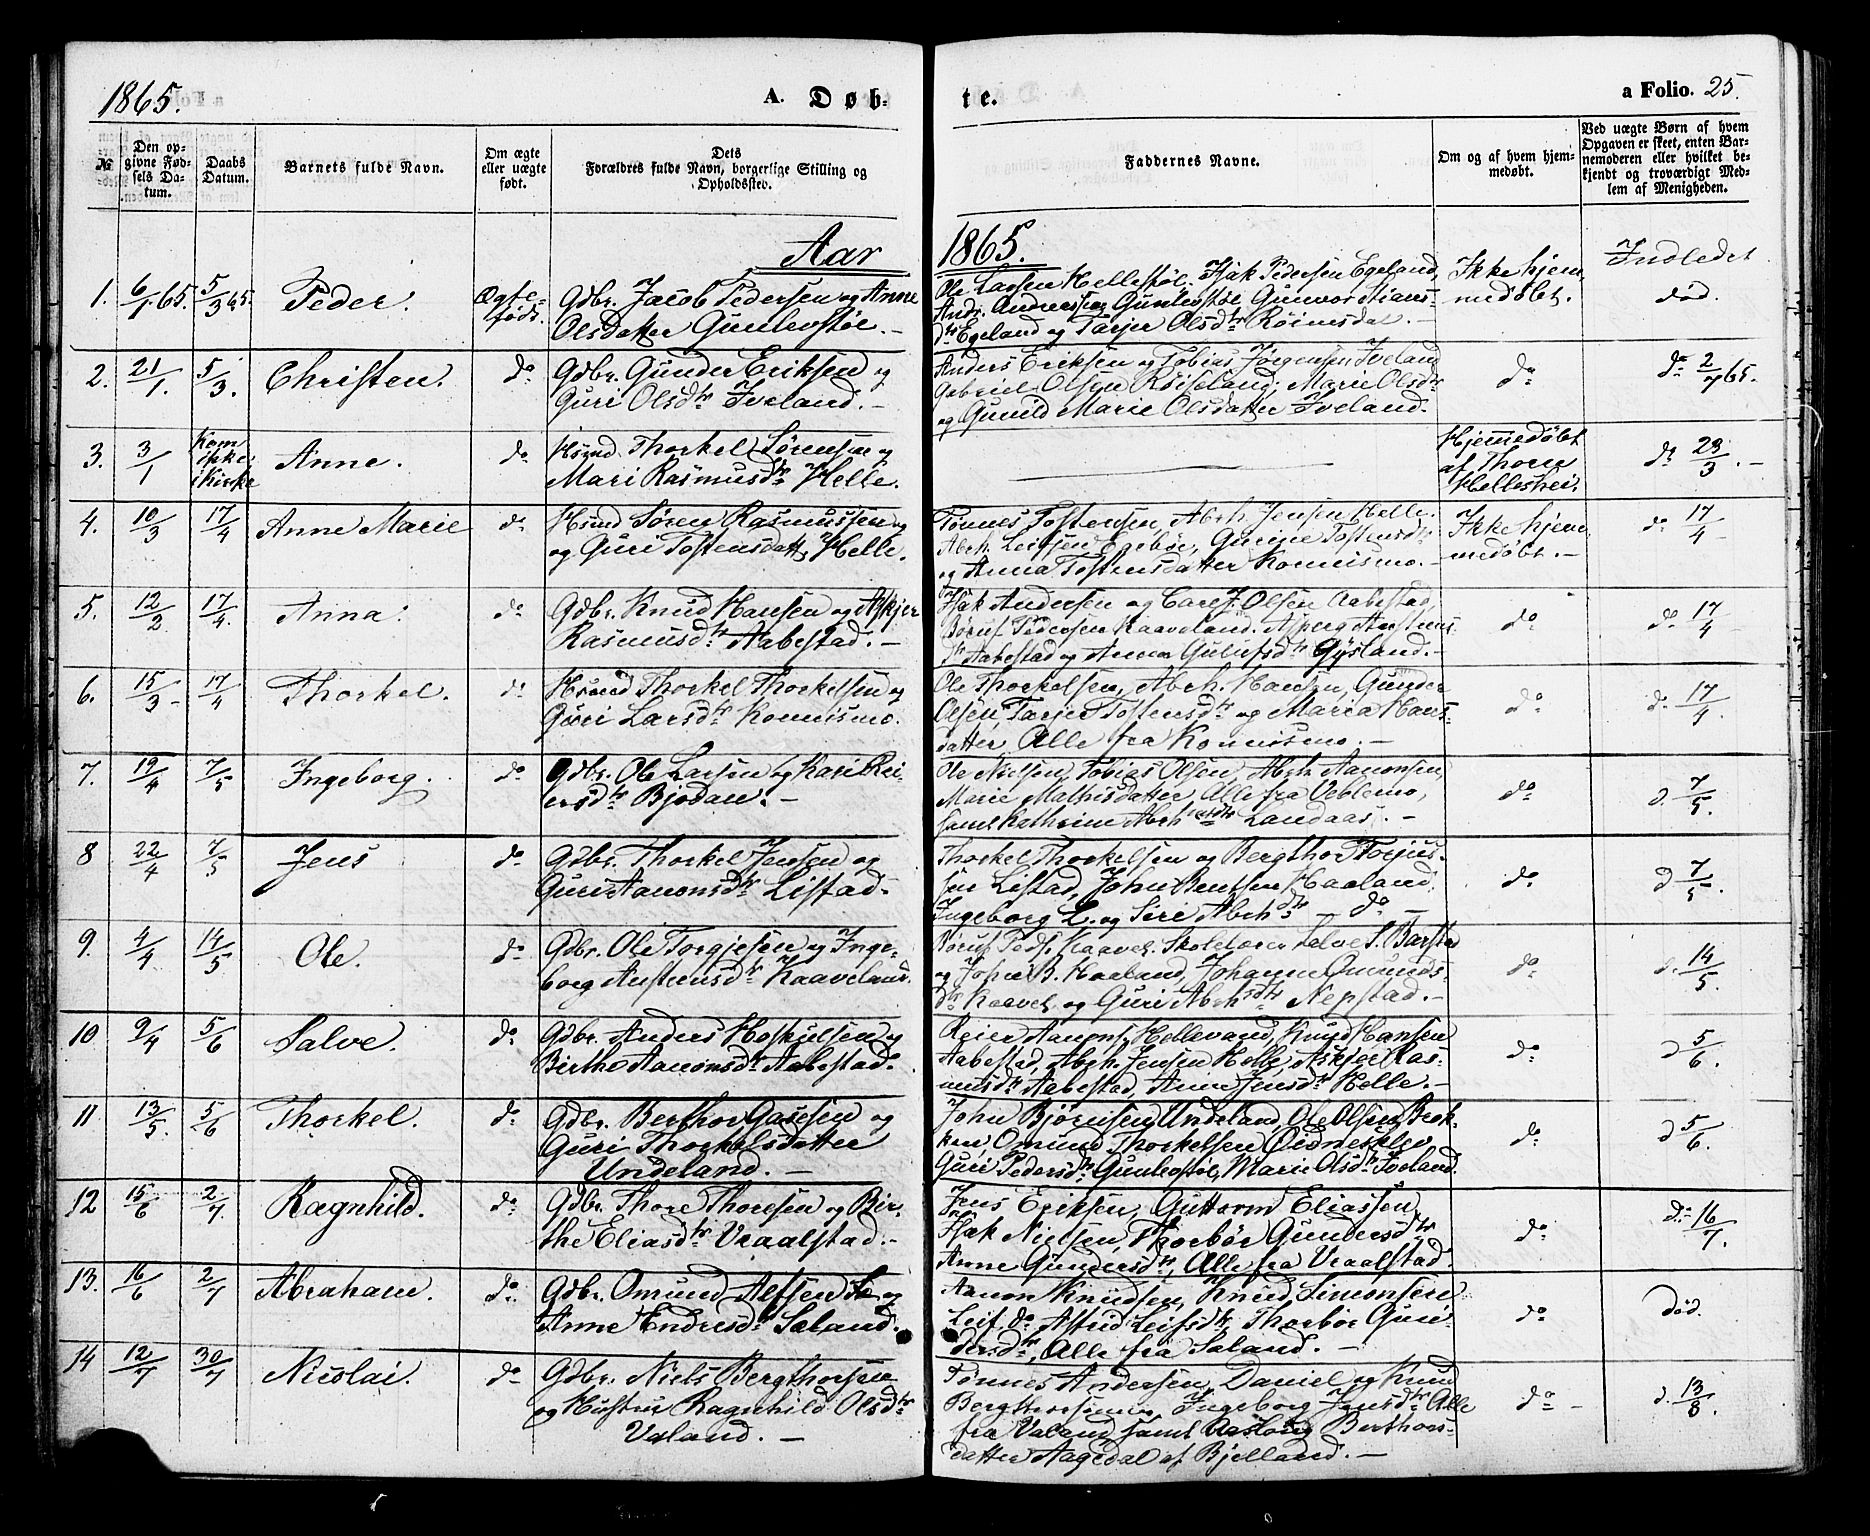 1865.
A. Døb-
te.
a Folio. 25.
№
Den op-
givne Fød-
sels Da-
tum.
Daabs
Datum.
Barnets fulde Navn.
Om ægte
eller uægte
født.
Dets
Forældres fulde Navn, borgerlige Stilling og
Opholdssted.
Faddernes Navne.
Om og af hvem hjem-
medøbt.
Ved uægte Børn af hvem
Opgaven er skeet, enten Bar-
nemoderen eller hvilket be-
kjendt og troværdigt Med-
lem af Menigheden.
Aar
1865.
Indledet
1. 6/1 65. 5/3 65. Peder. Ægte-
født.
Gdbr. Jacob Pedersen og Anne
Olsdatter Gunlevstøl. -
Ole Larsen Hellestøl. Isak Pedersen Egeland,
Andr. Andersen Gunlevstøl, Gunvor Stians-
dtr Egeland og Tarjer Olsdtr Røinesdal. -
Ikke hjem
medøbt.
død.
2. 21/1. 5/3. Christen. do
Gdbr. Gunder Eriksen og
Guri Olsdtr Iveland. -
Anders Eriksen og Tobias Jørgensen Iveland
Gabriel Olsen Røiseland, Marie Olsdtr
og Gunild Marie Olsdatter Iveland.
do
do 2/7 65.
3. 3/1 Kom
ikke
i Kirke
Anne. do
Hsmd. Thorkel Sørensen og
Mari Rasmusdtr Helle.
Hjemmedøbt
af Thore
Helleshei.
do 23/3. -
4. 10/3 17/4 Anne Marie do
Hsmd Søren Rasmussen og
og Guri Tostensdatt. Helle.
Tønnes Tostensen, Abrh. Jensen Helle.
Abrh. Leifsen Egebøe, Gurine Tostensdtr
og Anna Tostensdatter Konnismo. -
Ikke hjem
medøbt. -
do 17/4
5. 12/2 17/4. Anna. do
Gdbr. Knud Hansen og Askjer
Rasmusdtr Aabestad. -
Isak Andersen og Carl J. Olsen Aabestad,
Børuf Pedersen Kaaveland. Asberg Austens
dtr Aabestad og Anna Gulufsdtr Gysland. -
do
do 17/4
6. 15/3 - 17/4 Thorkel. do
Hsmd Thorkel Thorkelsen og
Guri Larsdtr Konnismo.
Ole Thorkelsen, Abrh. Hansen, Gunder
Olsen, Tarjer Tostensdtr og Maria Hans-
datter, Alle fra Konnismo. -
do
do 17/4.
7. 19/4 7/5 Ingeborg. do
Gdbr. Ole Larsen og Kari Rei-
ersdtr Bjodan. -
Ole Nielsen, Tobias Olsen, Abrh. Aanonsen,
Marie Mathisdatter Alle fra Veblemo,
samt Kathrine Abrh dtr Landaas. -
do
d. 7/5.
8 22/4 7/5 Jens do
Gdbr. Thorkel Jensen og
Guri Aanonsdtr Listad. -
Thorkel Thorkelsen og Bergthor Torjus-
sen Listad, John Bentsen Haaland,
Ingeborg L. og Siri Abrhsdtr do -
do
d 7/5.
9. 4/4 14/5 Ole. do
Gdbr. Ole Torgjesen og Inge-
borg Austensdtr Kaaveland.
Børuf Peds. Kaavel. Skolelærer Salve S. Barstad
og John B. Haaland, Johanne Omunds-
dtr Kaavel. og Guri Abrhsdtr Nepstad. -
do
d. 14/5.
10 9/4 5/6 Salve. do
Gdbr. Anders Hoskulsen og
Birthe Aanonsdtr Aabestad.
Reier Aanons. Hellevand, Knud Hansen
Aabestad, Abrh. Jensen Helle, Askjer Ras-
musdtr Aabestad, Anne Jensdtr Helle. -
do
d 5/6.
11. 13/5. 5/6 Thorkel. do
Gdbr. Berthor Aasesen og
Guri Thorkelsdatter
Undeland. -
John Bjørnsen Undeland, Ole Olsen Brek-
ken, Omund Thorkelsen Eidnesklev,
Guri Pedersdtr Gunlevstøl, Marie Olsdtr Iveland.
do
d 5/6.
12 15/6 2/7. Ragnhild. do
Gdbr. Thore Thoresen og Bir-
the Eliasdtr Vraalstad. -
Jens Eriksen, Guttorm Eliassen,
Isak Nielsen, Thorbør Gundersdtr
Anne Gundersdtr, Alle fra Vraalstad.
do
do 16/7.
13. 16/6 2/7 Abraham. do
Gdbr. Omund Alfsen og
Anne Endresdtr Seland.
Aanon Knudsen, Knud Simonsen
Leif do Astrid Leifsdtr, Thorbør Gun-
dersdtr, Alle fra Seland. -
do
død.
14 12/7 30/7 Nicolai. do
Gdbr. Niels Bergthorsen
og Hustru Ragnhild Olsdtr
Valand. -
Tønnes Andersen, Daniel og Knud
Bergthorsen, Ingeborg Jensdtr Alle
fra Valand, samt Aaslaug Berthors-
datter Aagedal af Bjelland. -
do -
d. 13/8.